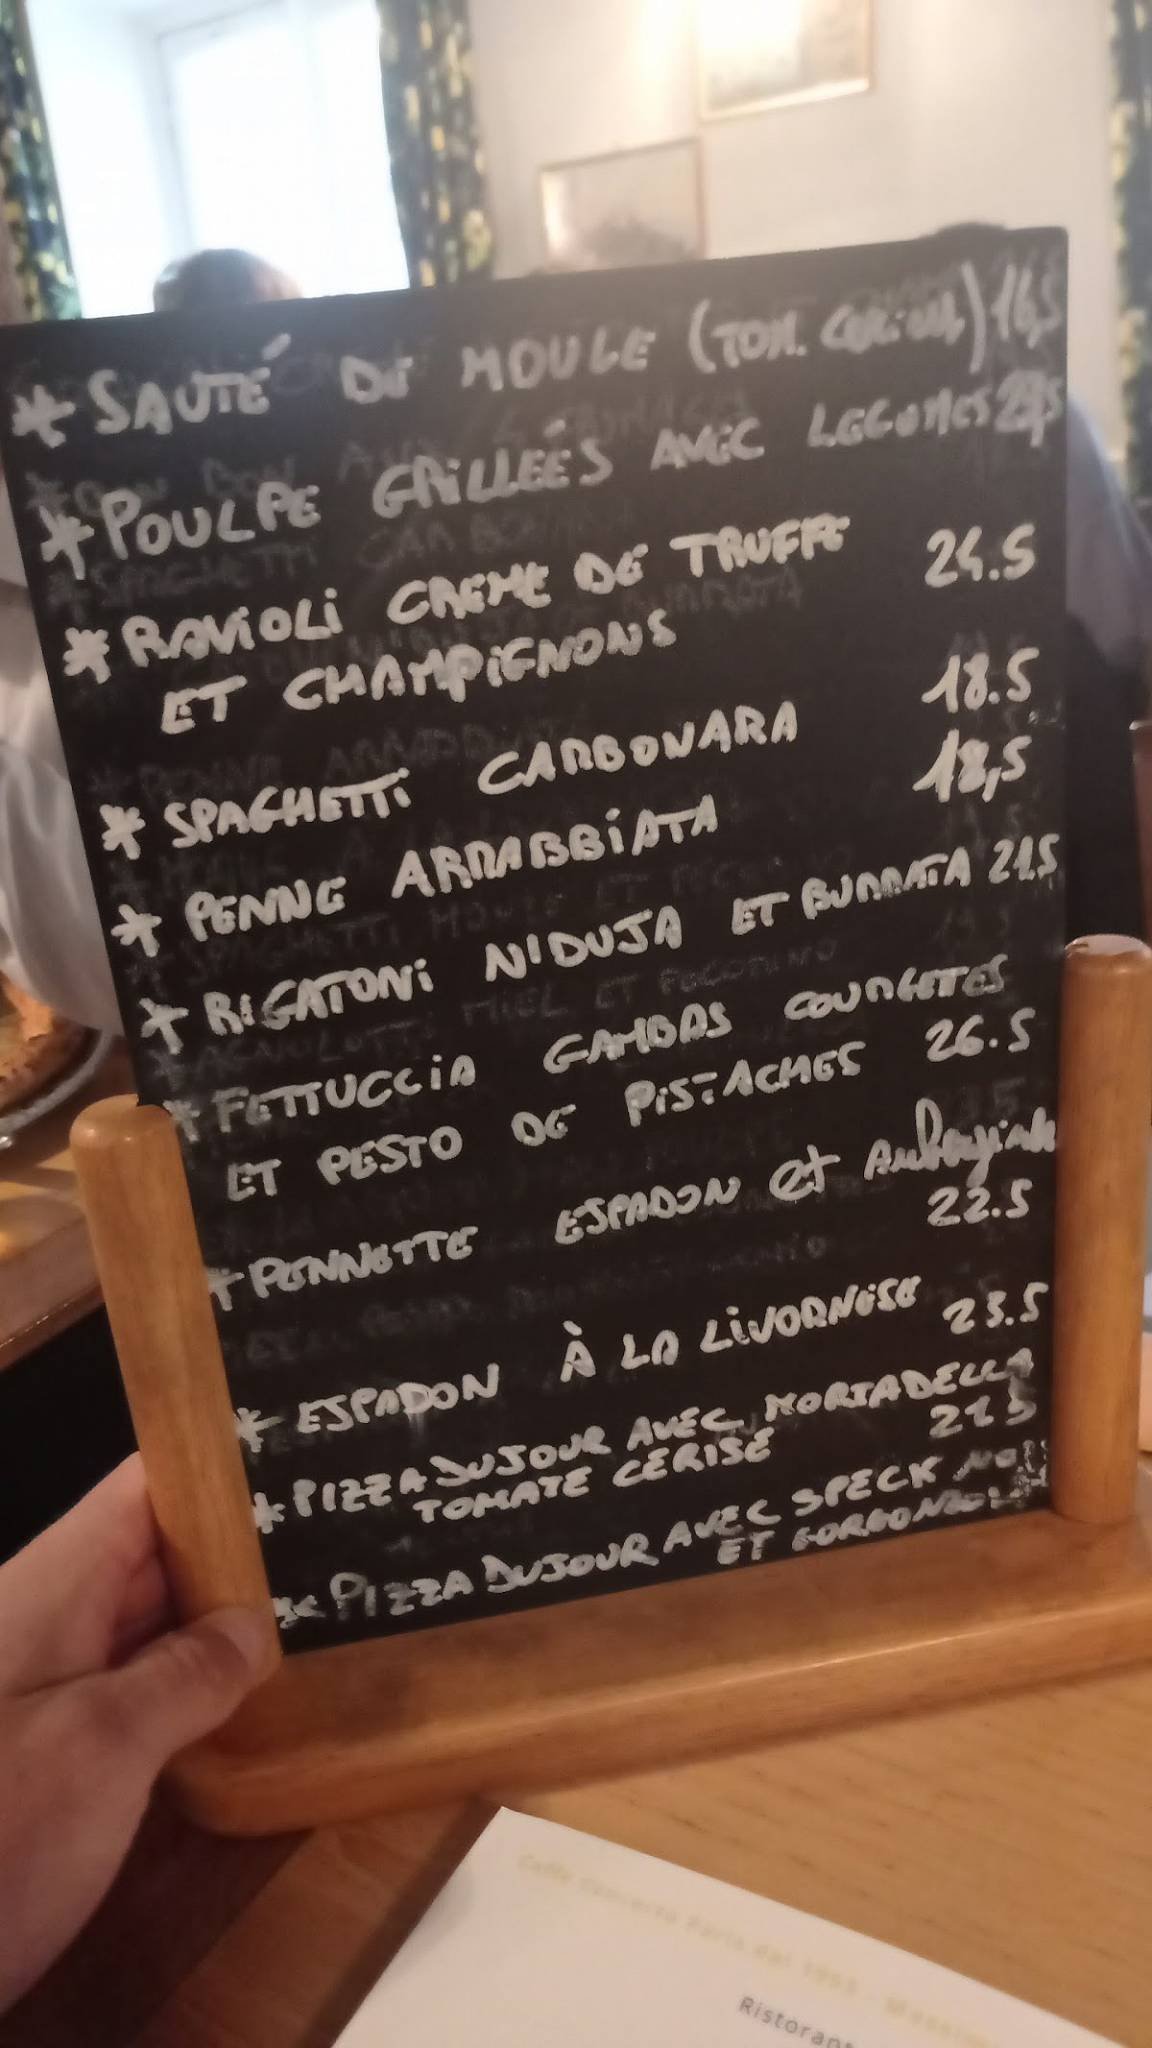 * SAUTÉ DE MOULE (TOM. CERISE) 16,5
* POULPE GRILLÉÉS AVEC LEGUMES
* RAVIOLI CREME DE TRUFFE 24.5
ET CHAMPIGNONS
* SPAGHETTI CARBONARA 18.5
* PENNE ARRABBIATA 18,5
* RIGATONI N'DUJA ET BURRATA 21.5
* FETTUCCIA GAMBAS COURGETES
ET PESTO DE PISTACHES 26.5
* PENNETTE ESPADON et Aubergine
22.5
* ESPADON À LA LIVORNESE 23.5
* PIZZA DU JOUR AVEC MORTADELLA
TOMATE CERISE 21 5
* PIZZA DU JOUR AVEC SPECK
ET GORGONZOLA
Caffè Concerto Paris dal 1995